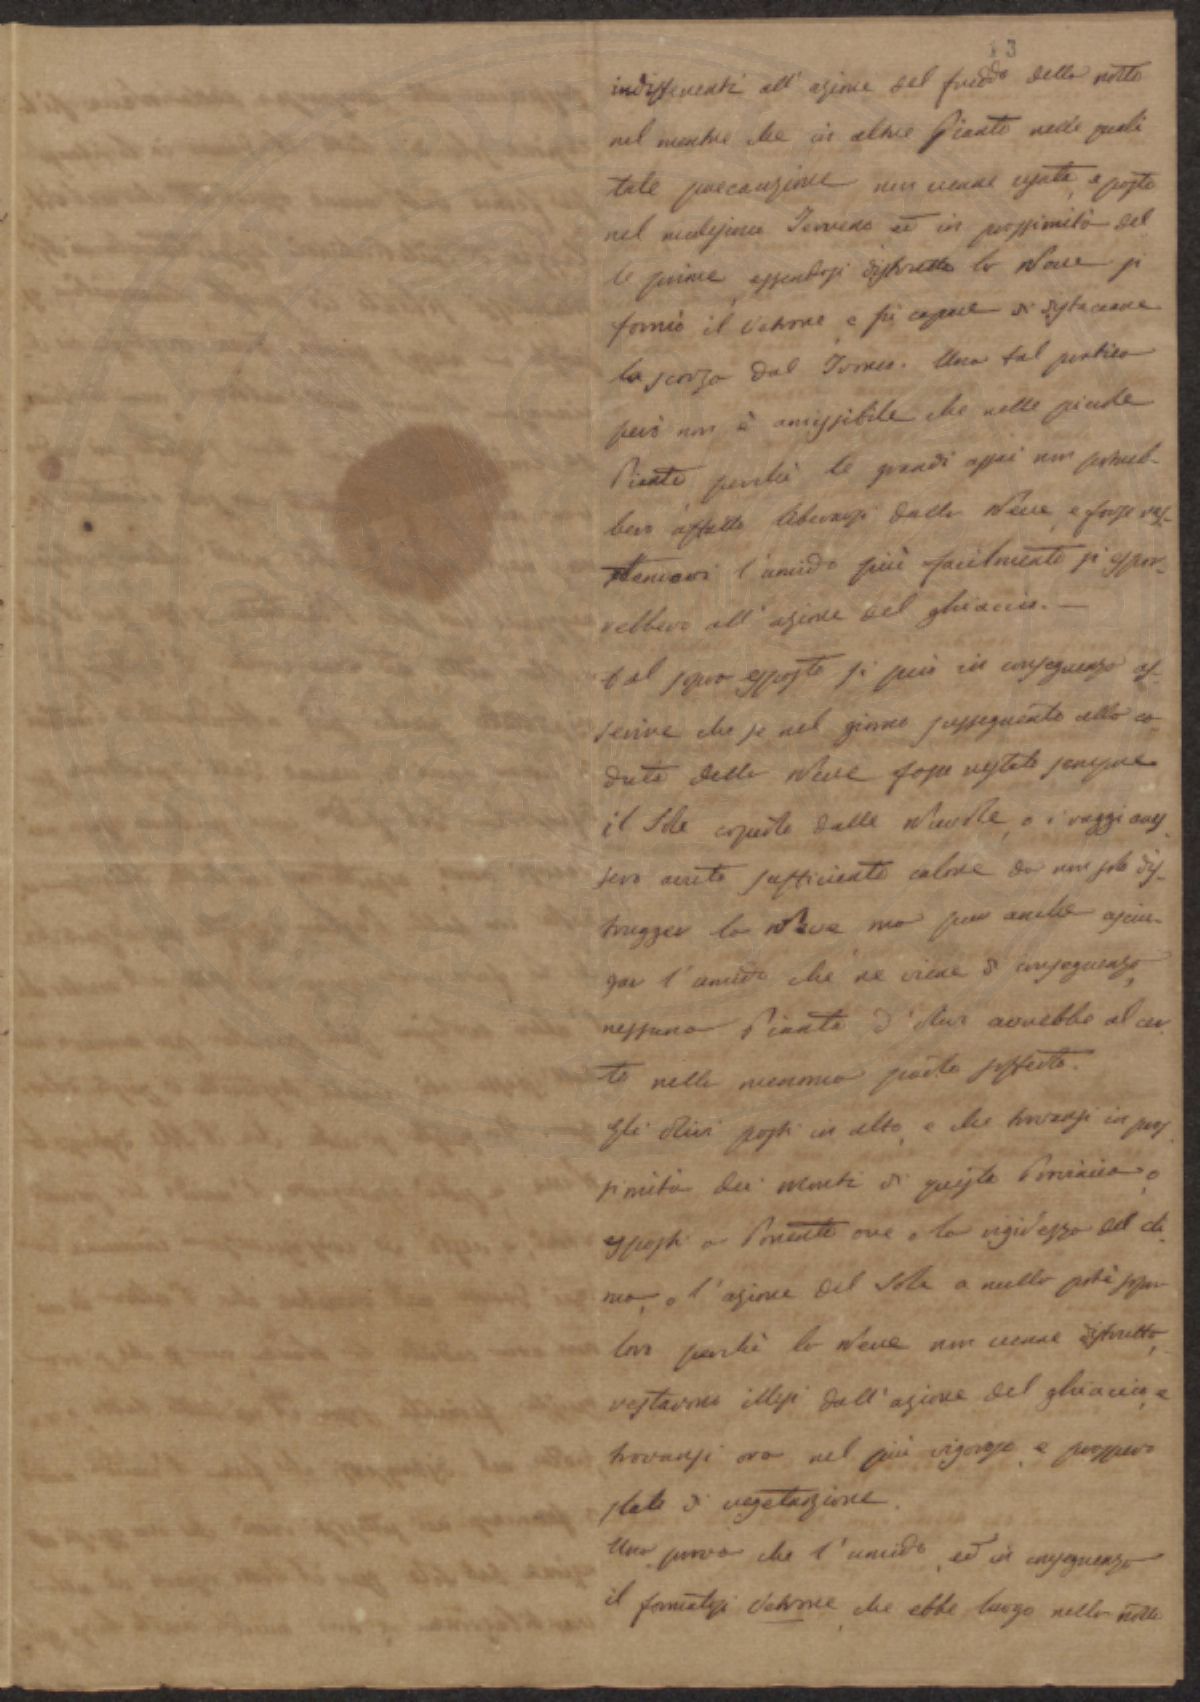 13
indifferenti all'azione del freddo della notte
nel mentre che in altre Piante nelle quali
tale precauzione non venne usata, e poste
nel medesimo Terreno ed in prossimità del
le prime, essendosi distrutta la Neve si
formò il Vetrone, e fù capace di distaccare
la scorza dal Tronco. Una tal pratica
però non è amissibile che nelle piccole
Piante, perchè le grandi assai non potreb-
bero affatto liberarsi dalla Neve, e forse ras-
l'umido più facilmente si espor-
rebbero all'azione del ghiaccio. —
Dal sopra esposto si può in conseguenza as-
serire che se nel giorno susseguente alla ca
duta della Neve fosse restato sempre
il Sole coperto dalle Nuvole, o i raggi aves
sero avuto sufficiente calore da non solo dis-
trugger la Neve ma pur anche asciu-
gar l'umido che ne viene di conseguenza,
nessuna Pianta d'Olivi avrebbe al cer
to nella menoma parte sofferto.
Gli Olivi posti in alto, e che trovansi in pros
simità dei Monti di questa Provincia, o
esposti a Ponente ove o la rigidezza del cli
ma, o l'azione del Sole a nulla potè sopra
loro perchè la Neve non venne distrutta,
restarono illesi dall'azione del ghiaccio, e
trovansi ora nel più vigoroso, e prospero
stato di vegetazione.
Una prova che l'umido, ed in conseguenza
il formatosi Vetrone, che ebbe luogo nella notte